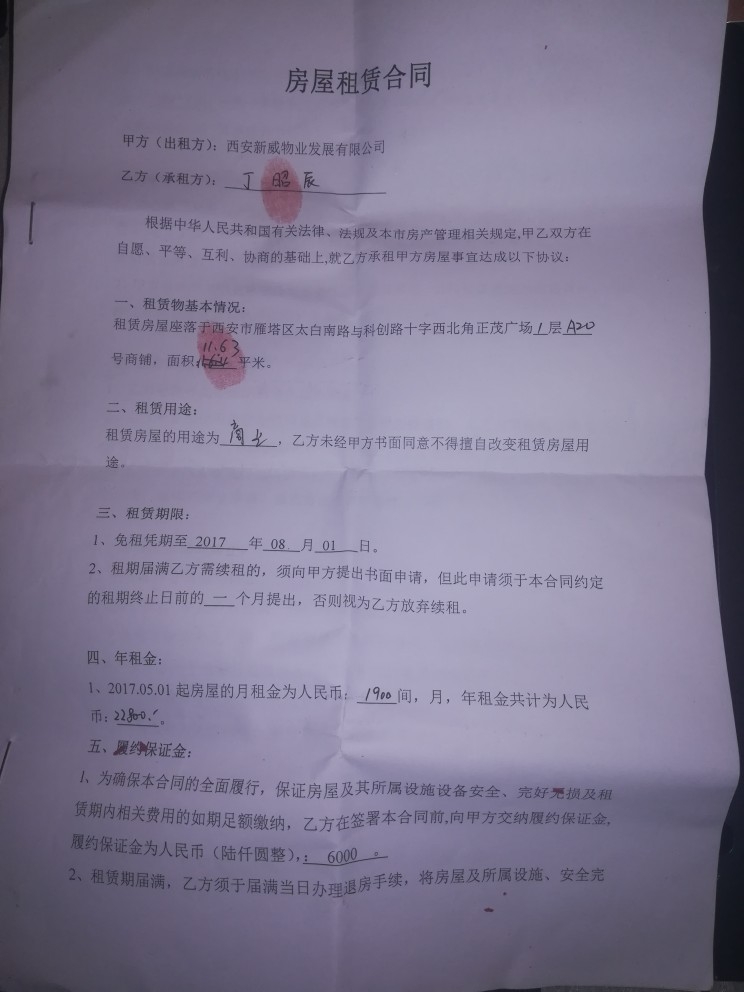 房屋租赁合同
甲方（出租方）：西安新威物业发展有限公司
乙方（承租方）：丁昭辰
根据中华人民共和国有关法律、法规及本市房产管理相关规定,甲乙双方在
自愿、平等、互利、协商的基础上,就乙方承租甲方房屋事宜达成以下协议：
一、租赁物基本情况：
租赁房屋座落于西安市雁塔区太白南路与科创路十字西北角正茂广场1层A20
11.63
号商铺，面积平米。
二、租赁用途：
租赁房屋的用途为商业，乙方未经甲方书面同意不得擅自改变租赁房屋用
途。
三、租赁期限：
1、免租凭期至2017年08月01日。
2、租期届满乙方需续租的，须向甲方提出书面申请，但此申请须于本合同约定
的租期终止日前的一个月提出，否则视为乙方放弃续租。
四、年租金：
1、2017.05.01起房屋的月租金为人民币：1900间，月，年租金共计为人民
币：22800。
五、履约保证金：
1、为确保本合同的全面履行，保证房屋及其所属设施设备安全、完好无损及租
赁期内相关费用的如期足额缴纳，乙方在签署本合同前,向甲方交纳履约保证金,
履约保证金为人民币（陆仟圆整），：6000。
2、租赁期届满，乙方须于届满当日办理退房手续，将房屋及所属设施、安全完